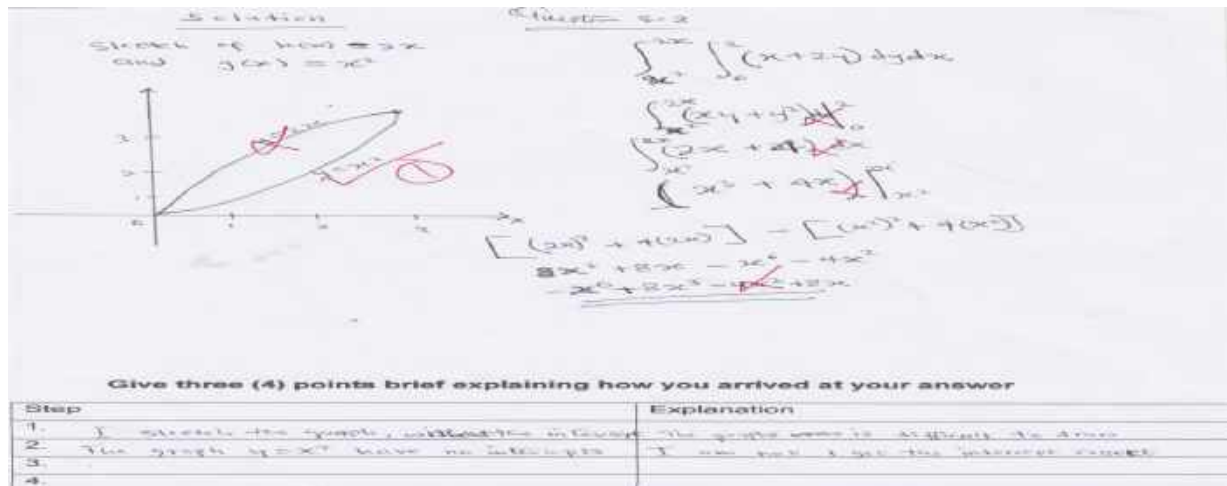 Solution
Sketch of h(x) = 2x
and g(x) = x²
3
2
1
0
1
2
3
x
y = x²
1
Question 5.2
∫_{x²}^{2x} ∫_0^2 (x+2y) dy dx
∫_{x²}^{2x} (xy + y²) |_0^2
∫_{x²}^{2x} (2x + 4) dx
(x³ + 4x) |_{x²}^{2x}
[(2x)³ + 4(2x)] - [(x²)³ + 4(x²)]
8x³ + 8x - x⁶ - 4x²
-x⁶ + 8x³ - 4x² + 8x
Give three (4) points brief explaining how you arrived at your answer
Step Explanation
1. I sketch the graph, without the intercept The graph is difficult to draw
2 The graph y = x² have no intercepts I am not get the intercept correct
3.
4.